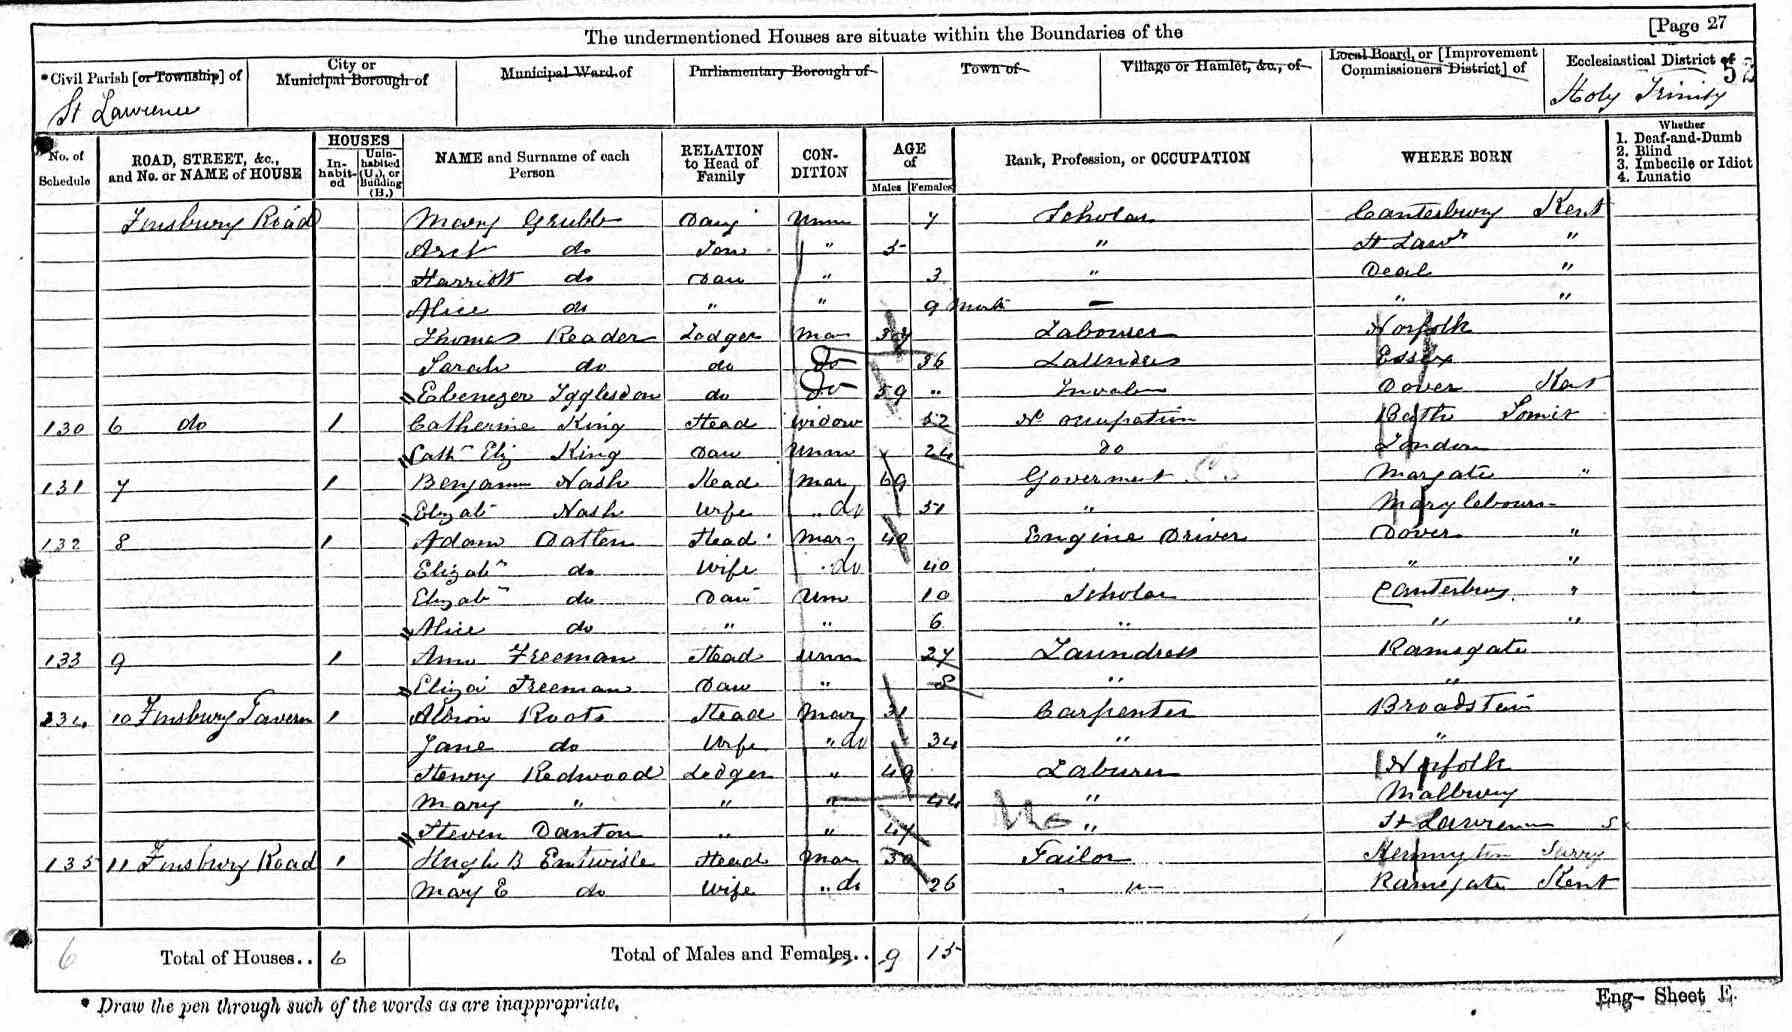 [Page 27
The undermentioned Houses are situate within the Boundaries of the
*Civil Parish [or Township] of
City or Municipal Borough of
Municipal Ward of
Parliamentary Borough of
Town of
Village or Hamlet, &c., of
Local Board, or [Improvement Commissioners District] of
Ecclesiastical District of
St Lawrence
Holy Trinity
No. of Schedule
ROAD, STREET, &c., and No. or NAME of HOUSE
HOUSES
In-habit-ed
Unin-habited (U.), or Building (B.)
NAME and Surname of each Person
RELATION to Head of Family
CON-DITION
AGE of
Males
Females
Rank, Profession, or OCCUPATION
WHERE BORN
Whether
1. Deaf-and-Dumb
2. Blind
3. Imbecile or Idiot
4. Lunatic
Finsbury Road Mary Grubb Daug Unm 7 Scholar Canterbury Kent
do Son " 5 " St Lawr "
Harriott do Dau " 3 " Deal "
Alice do " " 9 Mnth - " "
Thomas Reader Lodger Mar Labourer Norfolk
Sarah do do Do 36 Laundres Essex
Ebenezer Igglesdon do Do 59 " Dover Kent
130 6 do 1 Catherine King Head Widow 52 No occupation Bath Somst
Cathn Eliz King Dau Unm 24 Do London
131 7 1 Benjamin Nash Head Mar 69 Goverment Margate "
Elizabth Nash Wife " do 51 " Marylebourn
132 8 1 Adam Datten Head Mar 40 Engine Driver Dover "
Elizabth do Wife do 40 " "
Elizabth do Dau Unm 10 Scholar Canterbury "
Alice do " " 6 " " "
133 9 1 Ann Freeman Head Unm 27 Laundress Ramsgate
Eliza Freeman Dau " 8 " "
134 10 Finsbury Tavern 1 Albion Roots Head Mar 31 Carpenter Broadstein
Jane do Wife " do 34 " "
Henry Redwood Lodger " 49 Laburer Norfolk
Mary " " " 44 "
Steven Danton " " 47 " St Lawrence
135 11 Finsbury Road 1 Hugh B Entwisle Head Mar 30 Tailor Kennington Surry
Mary E do Wife " do 26 " Ramsgate Kent
6 Total of Houses.. 6 Total of Males and Females.. 9 15
* Draw the pen through such of the words as are inappropriate.
Eng- Sheet E.